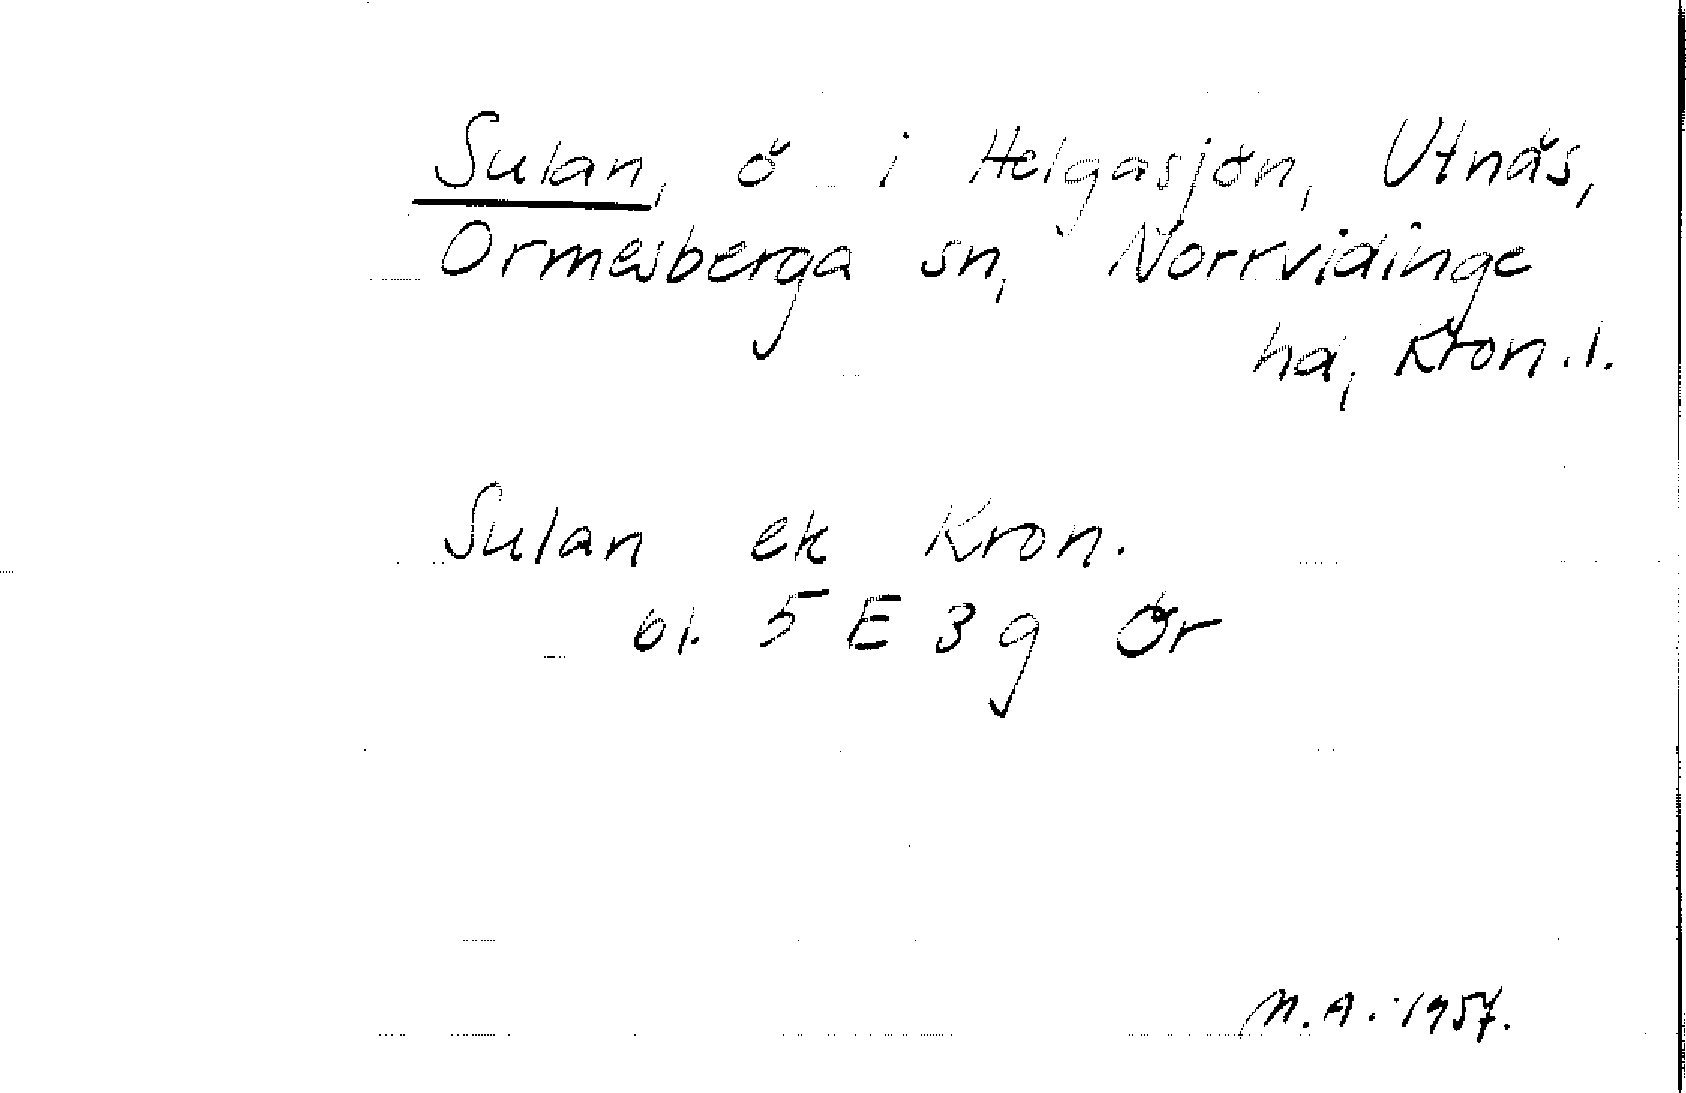 Sulan, ö i Helgasjön, Utnäs,
Ormesberga sn, Norrvidinge
hd, Kron.l.
Sulan ek Kron.
bl. 5 E 3 g Ör
M.A. 1957.